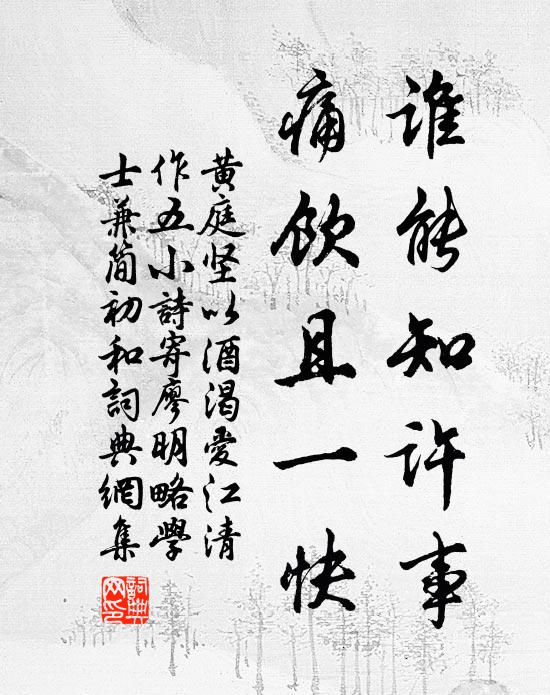 誰能知许事
痛飲且一快
黄庭坚以酒渴愛江清
作五小詩寄廖明略學
士兼简初和詞典網集